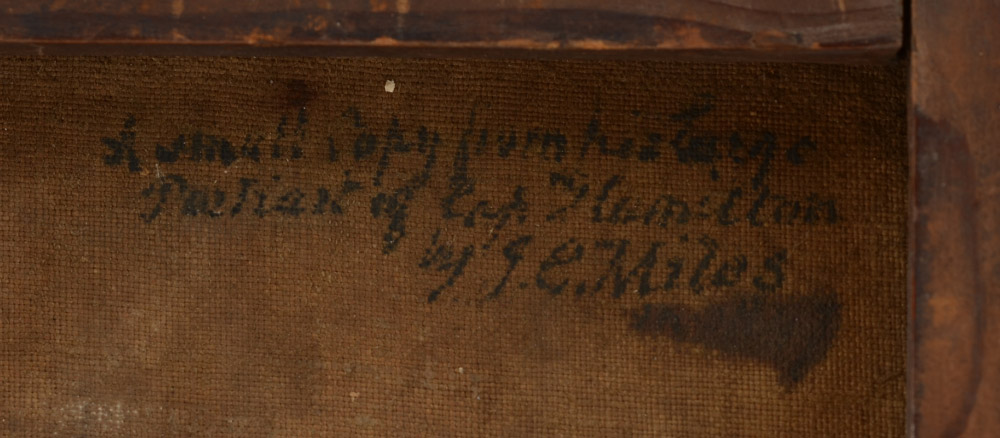 A small Copy from his Large
Portrait of Cap.tn Hamilton
by J. C. Miles